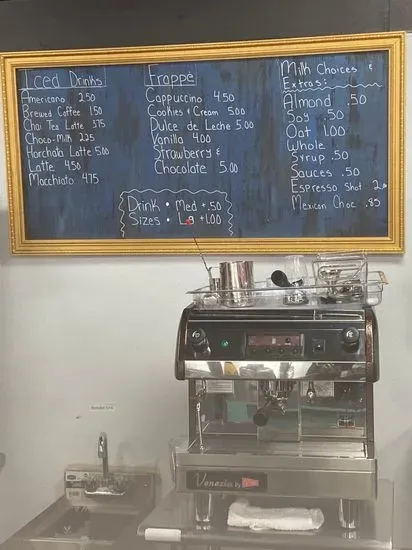 Iced Drinks
Americano 2.50
Brewed Coffee 1.50
Chai Tea Latte 3.75
Choco-Milk 2.25
Horchata Latte 5.00
Latte 4.50
Macchiato 4.75
Frappé
Cappuccino 4.50
Cookies & Cream 5.00
Dulce de Leche 5.00
Vanilla 4.00
Strawberry &
Chocolate 5.00
Drink • Med +.50
Sizes • Lg +1.00
Milk Choices &
Extras:
Almond .50
Soy .50
Oat 1.00
Whole
Syrup .50
Sauces .50
Espresso Shot 2.
Mexican Choc .85
Venezia